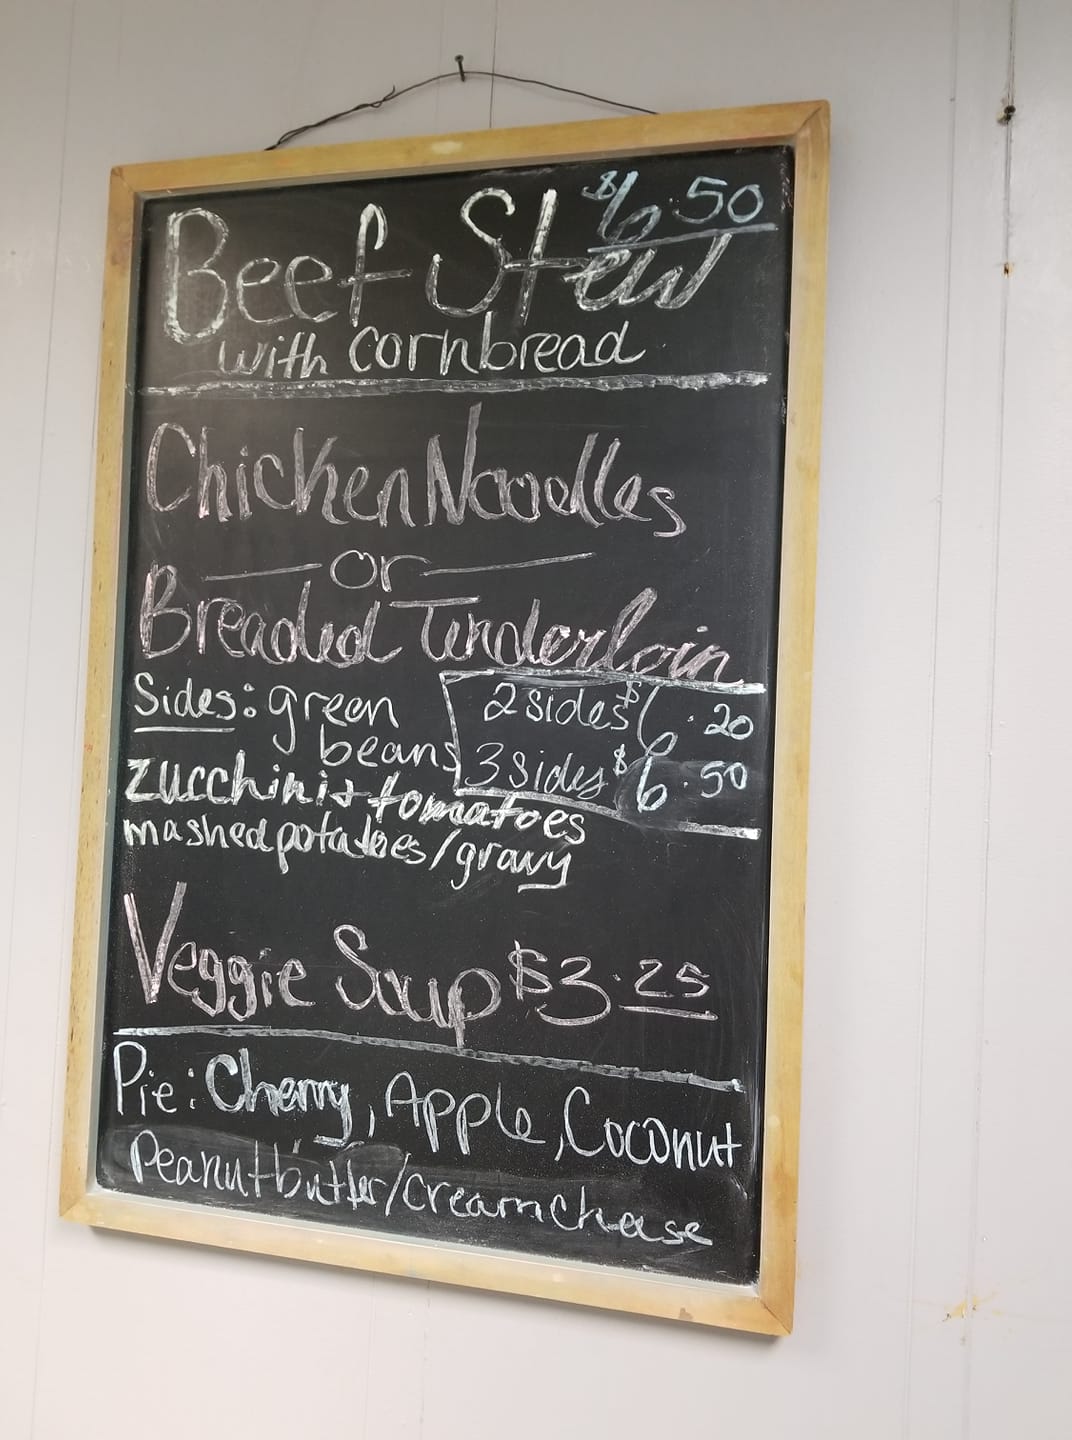 $6.50
Beef Stew
with cornbread
Chicken Noodles
or
Breaded Tenderloin
Sides: green
beans
zucchini & tomatoes
mashed potatoes/gravy
2 sides $6.20
3 sides $6.50
Veggie Soup $3.25
Pie: Cherry, Apple, Coconut
Peanutbutter/creamchease